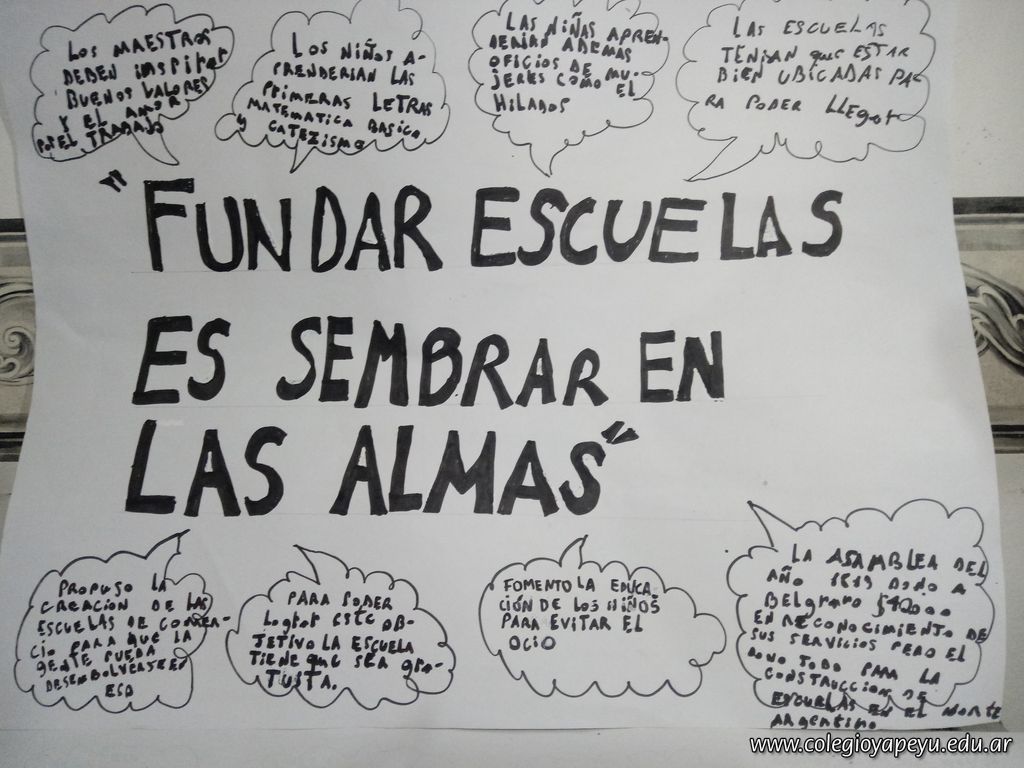 LOS MAESTROS
DEBEN INSPIRAR
BUENOS VALORES
Y EL AMOR
POR EL TRABAJO
LOS NIÑOS A-
PRENDERIAN LAS
PRIMERAS LETRAS
MATEMATICA BASICA
Y CATEZISMO
LAS NIÑAS APREN-
DERIAN ADEMAS
OFICIOS DE MU-
JERES COMO EL
HILADOS
LAS ESCUELAS
TENIAN QUE ESTAR
BIEN UBICADAS PA-
RA PODER LLEGAR
"FUNDAR ESCUELAS
ES SEMBRAR EN
LAS ALMAS"
PROPUSO LA
CREACION DE LAS
ESCUELAS DE COMER-
CIO PARA QUE LA
GENTE PUEDA
DESEMBOLVERSE EN
ESO
PARA PODER
LOGRAR ESTE OB-
TETIVO LA ESCUELA
TIENE QUE SER GRA-
TUITA.
FOMENTO LA EDUCA-
CIÓN DE LOS NIÑOS
PARA EVITAR EL
OCIO
LA ASAMBLEA DEL
AÑO 1813 DONO A
BELGRANO $40000
EN RECONOCIMIENTO DE
SUS SERVICIOS PERO EL
DONO TODO PARA LA
CONSTRUCCION DE
ESCUELAS EN EL NORTE
ARGENTINO
www.colegioyapeyu.edu.ar